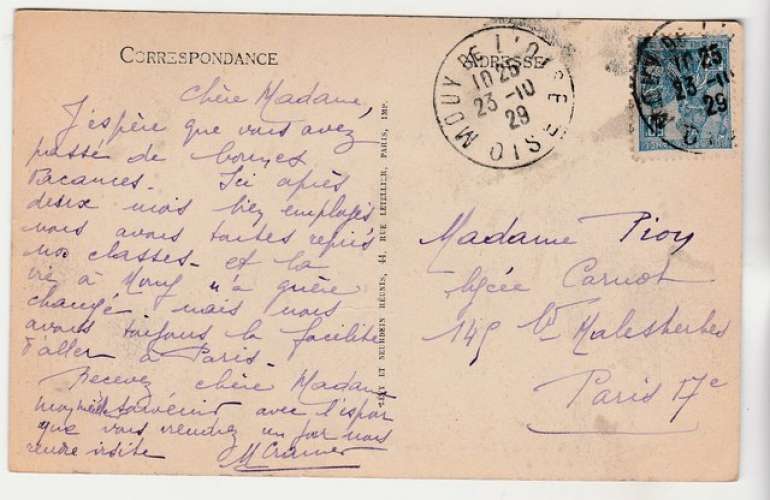 CORRESPONDANCE
Chère Madame,
J'espère que vous avez
passé de bonnes
vacances. Ici après
deux mois bien employés
nous avons toutes repris
nos classes. et la
vie à Mouy n'a guère
changé mais nous
avons toujours la facilité
d'aller à Paris.
Recevez chère Madame
mon meilleur souvenir avec l'espoir
que vous viendrez un jour nous
rendre visite
LEVY ET NEURDEIN RÉUNIS, 44, RUE LETELLIER, PARIS, IMP.
ADRESSE
MOUY DE L'OISE
10 25
23 -10
29
OISE
MOUY DE L'
10 25
23 -10
29
Madame
lycée Carnot
145 Bd Malesherbes
Paris 17e